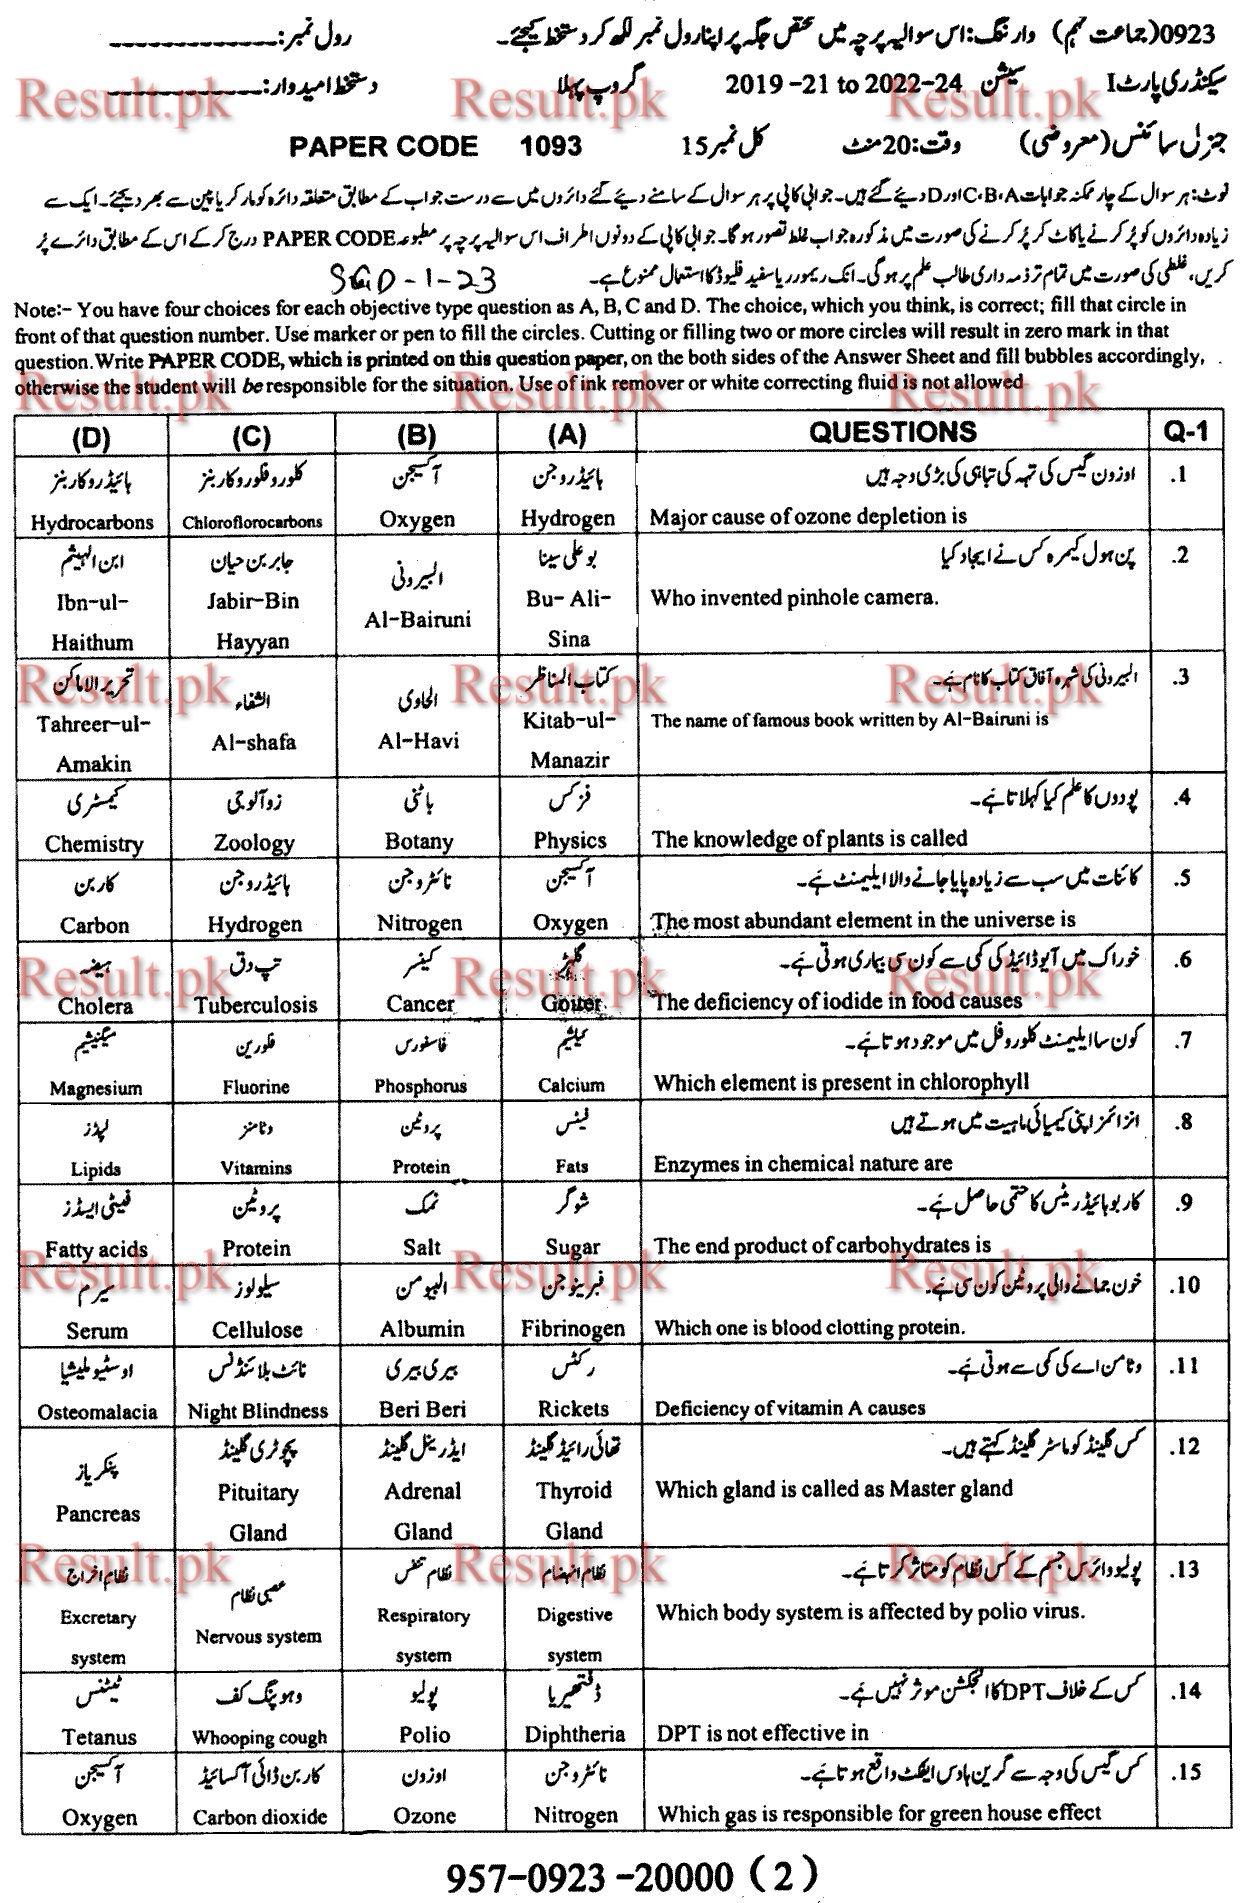 0923(جماعت نہم) وارننگ: اس سوالیہ پرچہ میں مختص جگہ پر اپنا رول نمبر لکھ کر دستخط کیجئے۔ رول نمبر: ـــــــــــــــ
سیکنڈری پارٹ I سیشن 2019-21 to 2022-24 گروپ پہلا دستخط امیدوار: ـــــــــــــــ
جنرل سائنس (معروضی) وقت: 20 منٹ کل نمبر 15 PAPER CODE 1093
نوٹ: ہر سوال کے چار ممکنہ جوابات A، B، C اور D دیئے گئے ہیں۔ جوابی کاپی پر ہر سوال کے سامنے دیئے گئے دائروں میں سے درست جواب کے مطابق متعلقہ دائرہ کو مارکر یا پین سے بھر دیجئے۔ ایک سے
زیادہ دائروں کو پُر کرنے یا کاٹ کر پُر کرنے کی صورت میں مذکورہ جواب غلط تصور ہو گا۔ جوابی کاپی کے دونوں اطراف اس سوالیہ پرچہ پر مطبوعہ PAPER CODE درج کر کے اس کے مطابق دائرے پُر
کریں، غلطی کی صورت میں تمام تر ذمہ داری طالب علم پر ہو گی۔ انک ریموور یا سفید فلیوڈ کا استعمال ممنوع ہے۔ SGD-1-23
Note:- You have four choices for each objective type question as A, B, C and D. The choice, which you think, is correct; fill that circle in
front of that question number. Use marker or pen to fill the circles. Cutting or filling two or more circles will result in zero mark in that
question. Write PAPER CODE, which is printed on this question paper, on the both sides of the Answer Sheet and fill bubbles accordingly,
otherwise the student will be responsible for the situation. Use of ink remover or white correcting fluid is not allowed
(D) (C) (B) (A) QUESTIONS Q-1
ہائیڈروکاربنز کلوروفلوروکاربنز آکسیجن ہائیڈروجن اوزون گیس کی تہہ کی تباہی کی بڑی وجہ ہیں .1
Hydrocarbons Chloroflorocarbons Oxygen Hydrogen Major cause of ozone depletion is
ابن الہیثم جابر بن حیان البیرونی بو علی سینا پن ہول کیمرہ کس نے ایجاد کیا .2
Ibn-ul-Haithum Jabir-Bin Hayyan Al-Bairuni Bu- Ali-Sina Who invented pinhole camera.
تحریر الاماکن الشفاء الحاوی کتاب المناظر البیرونی کی شہرہ آفاق کتاب کا نام ہے۔ .3
Tahreer-ul-Amakin Al-shafa Al-Havi Kitab-ul-Manazir The name of famous book written by Al-Bairuni is
کیمسٹری زوآلوجی باٹنی فزکس پودوں کا علم کیا کہلاتا ہے۔ .4
Chemistry Zoology Botany Physics The knowledge of plants is called
کاربن ہائیڈروجن نائٹروجن آکسیجن کائنات میں سب سے زیادہ پایا جانے والا ایلیمنٹ ہے۔ .5
Carbon Hydrogen Nitrogen Oxygen The most abundant element in the universe is
ہیضہ تپ دق کینسر گلہڑ خوراک میں آیوڈائیڈ کی کمی سے کون سی بیماری ہوتی ہے۔ .6
Cholera Tuberculosis Cancer Goiter The deficiency of iodide in food causes
میگنیشیم فلورین فاسفورس کیلشیم کون سا ایلیمنٹ کلوروفل میں موجود ہوتا ہے۔ .7
Magnesium Fluorine Phosphorus Calcium Which element is present in chlorophyll
لپڈز وٹامنز پروٹین فیٹس انزائمز اپنی کیمیائی ماہیت میں ہوتے ہیں .8
Lipids Vitamins Protein Fats Enzymes in chemical nature are
فیٹی ایسڈز پروٹین نمک شوگر کاربوہائیڈریٹس کا حتمی حاصل ہے۔ .9
Fatty acids Protein Salt Sugar The end product of carbohydrates is
سیرم سیلولوز البیومن فبرینوجن خون جمانے والی پروٹین کون سی ہے۔ .10
Serum Cellulose Albumin Fibrinogen Which one is blood clotting protein.
اوسٹیوملیشیا نائٹ بلائنڈنس بیری بیری رکٹس وٹامن اے کی کمی سے ہوتی ہے۔ .11
Osteomalacia Night Blindness Beri Beri Rickets Deficiency of vitamin A causes
پنکریاز پچوٹری گلینڈ ایڈرینل گلینڈ تھائی رائیڈ گلینڈ کس گلینڈ کو ماسٹر گلینڈ کہتے ہیں۔ .12
Pancreas Pituitary Gland Adrenal Gland Thyroid Gland Which gland is called as Master gland
نظام اخراج عصبی نظام نظام تنفس نظام انہضام پولیو وائرس جسم کے کس نظام کو متاثر کرتا ہے۔ .13
Excretary system Nervous system Respiratory system Digestive system Which body system is affected by polio virus.
ٹیٹنس وہوپنگ کف پولیو ڈفتھیریا کس کے خلاف DPT کا انجکشن موثر نہیں ہے۔ .14
Tetanus Whooping cough Polio Diphtheria DPT is not effective in
آکسیجن کاربن ڈائی آکسائیڈ اوزون نائٹروجن کس گیس کی وجہ سے گرین ہاؤس ایفکٹ واقع ہوتا ہے۔ .15
Oxygen Carbon dioxide Ozone Nitrogen Which gas is responsible for green house effect
957-0923-20000 (2)
Result.pk